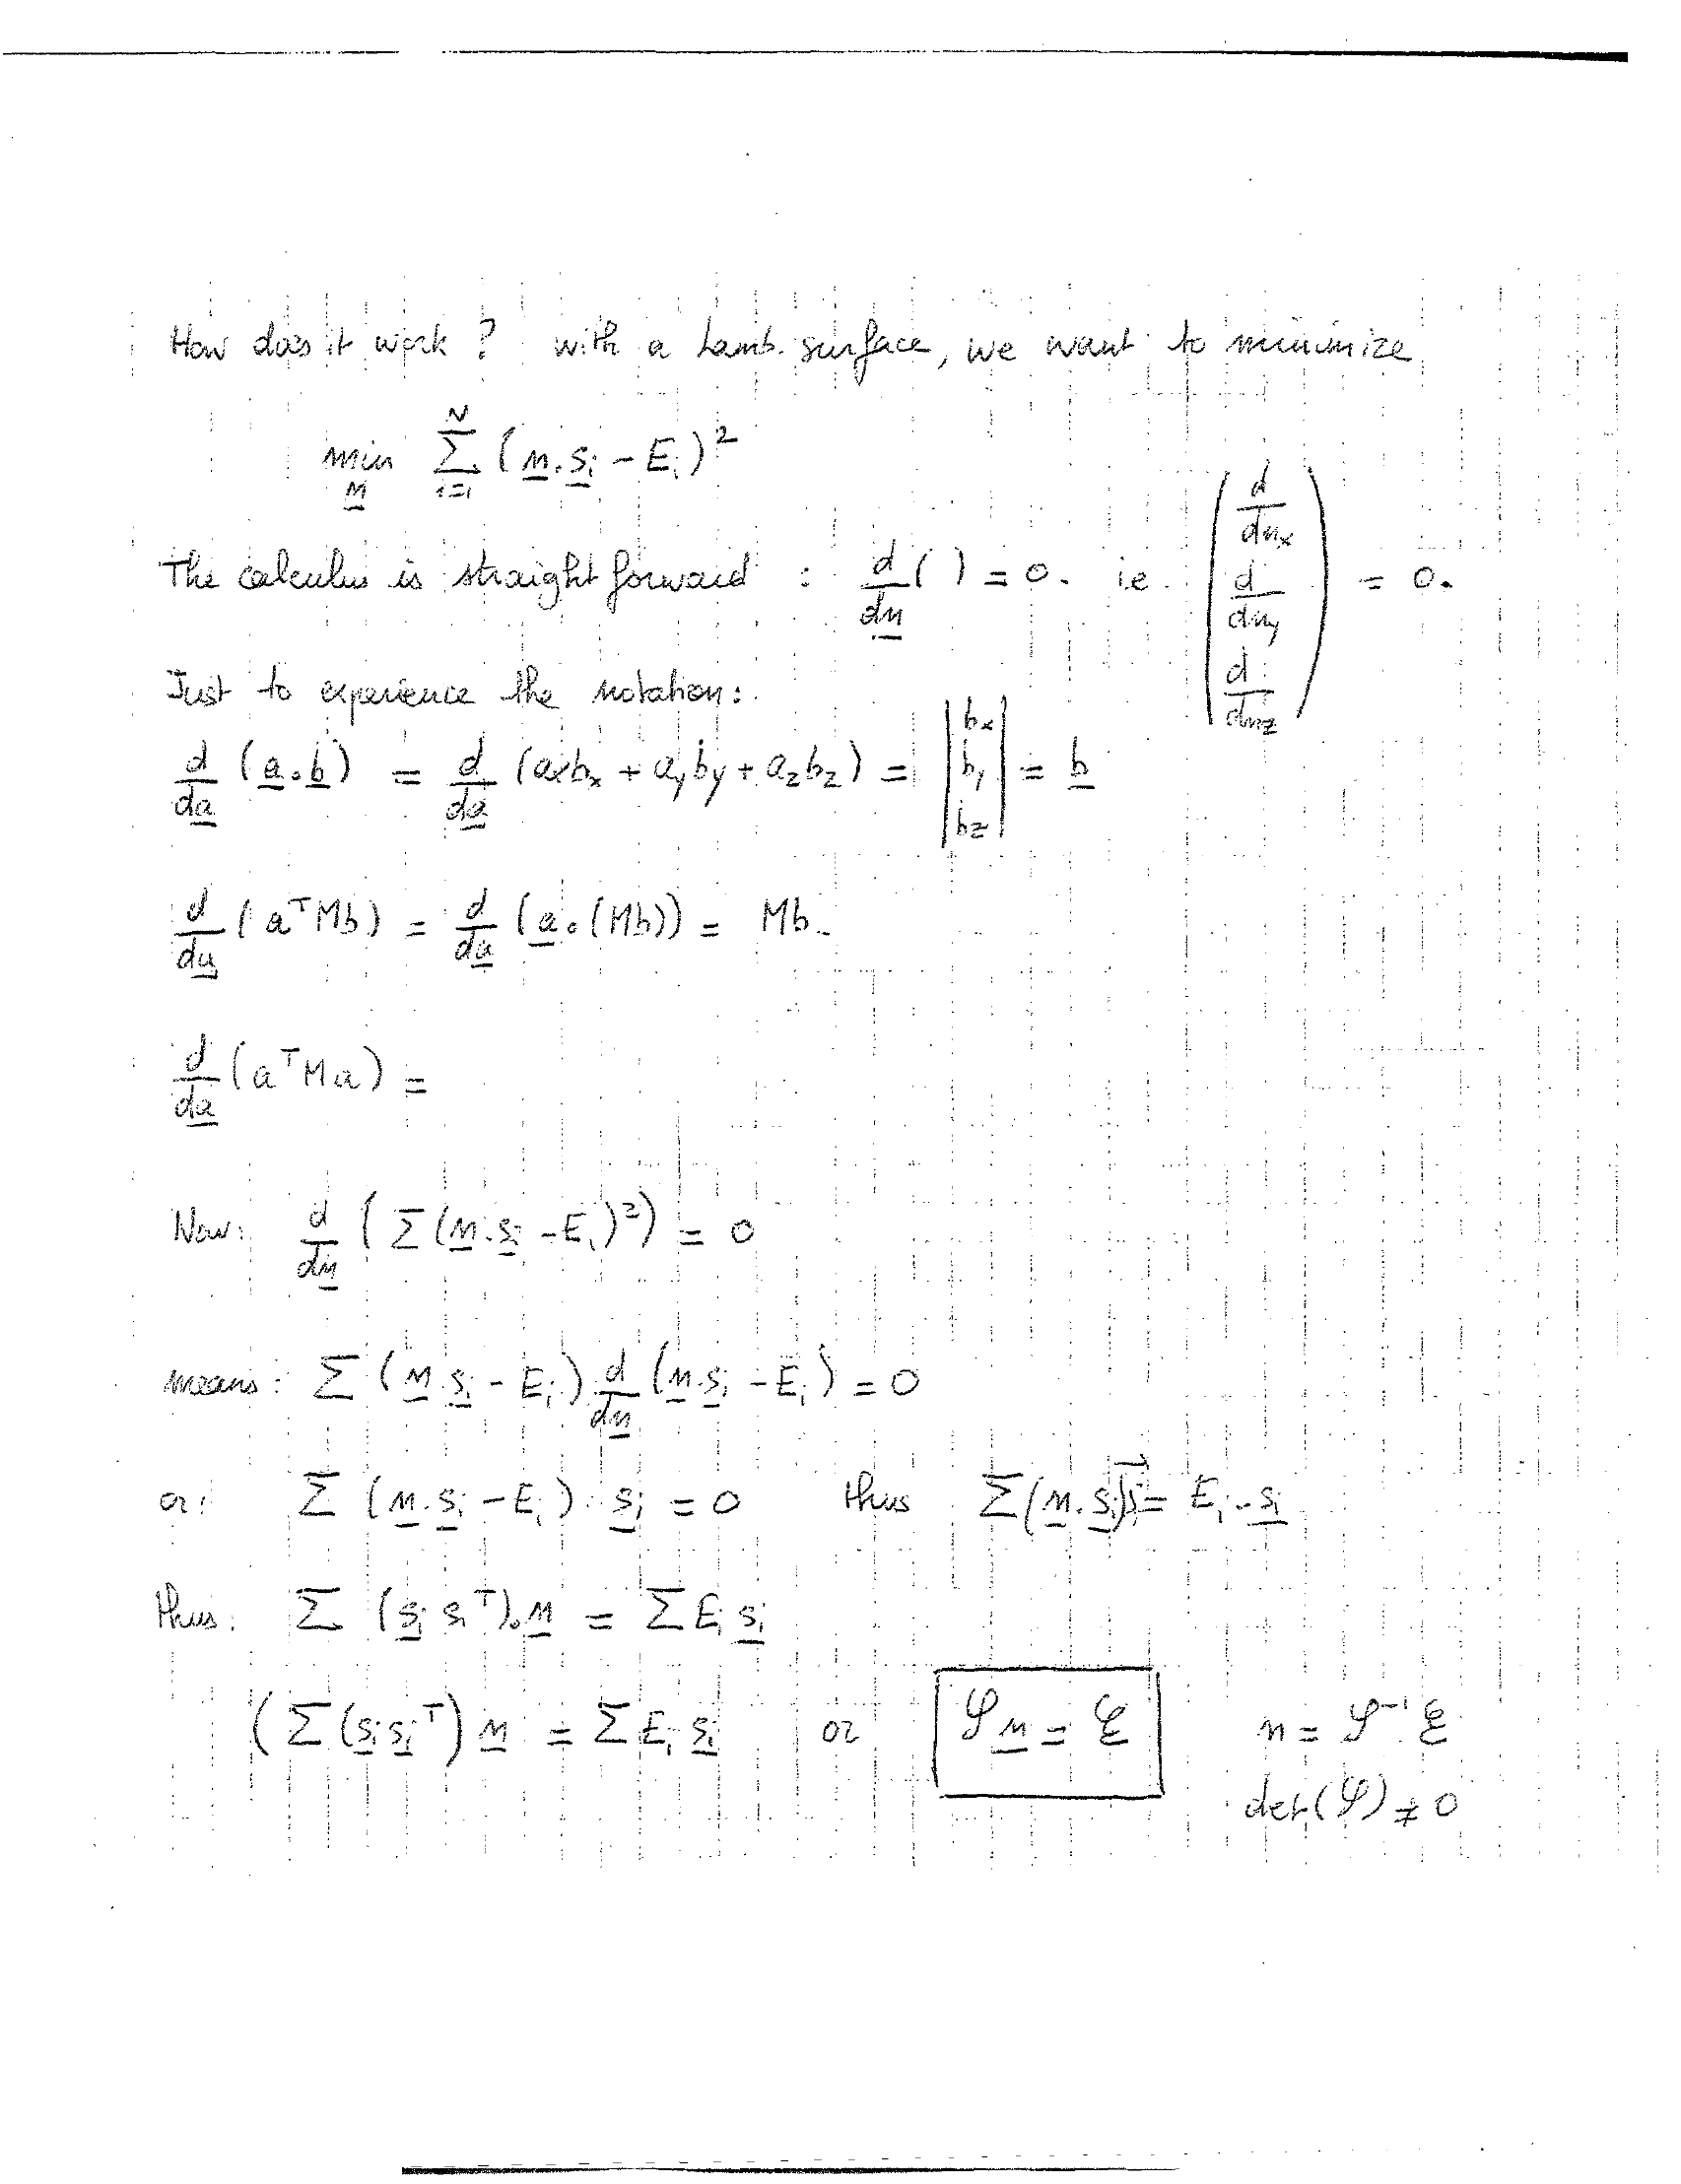 How does it work ? with a Lamb. surface, we want to minimize
min_n Σ_{i=1}^{N} (n . s_i - E_i)^2
The calculus is straight forward : d/dn ( ) = 0. i.e. (d/dn_x d/dn_y d/dn_z) = 0.
Just to experience the notation:
d/da (a . b) = d/da (a_x b_x + a_y b_y + a_z b_z) = | b_x b_y b_z | = b
d/da (a^T M b) = d/da (a . (Mb)) = Mb.
d/da (a^T M a) =
Now: d/dn ( Σ (n . s_i - E_i)^2 ) = 0
means: Σ (n . s_i - E_i) d/dn (n . s_i - E_i) = 0
or: Σ (n . s_i - E_i) . s_i = 0 thus Σ (n . s_i) s_i = E_i . s_i
thus: Σ (s_i s_i^T) . n = Σ E_i s_i
(Σ (s_i s_i^T) n = Σ E_i s_i or 𝒮 n = ℰ n = 𝒮^-1 ℰ
det(𝒮) ≠ 0